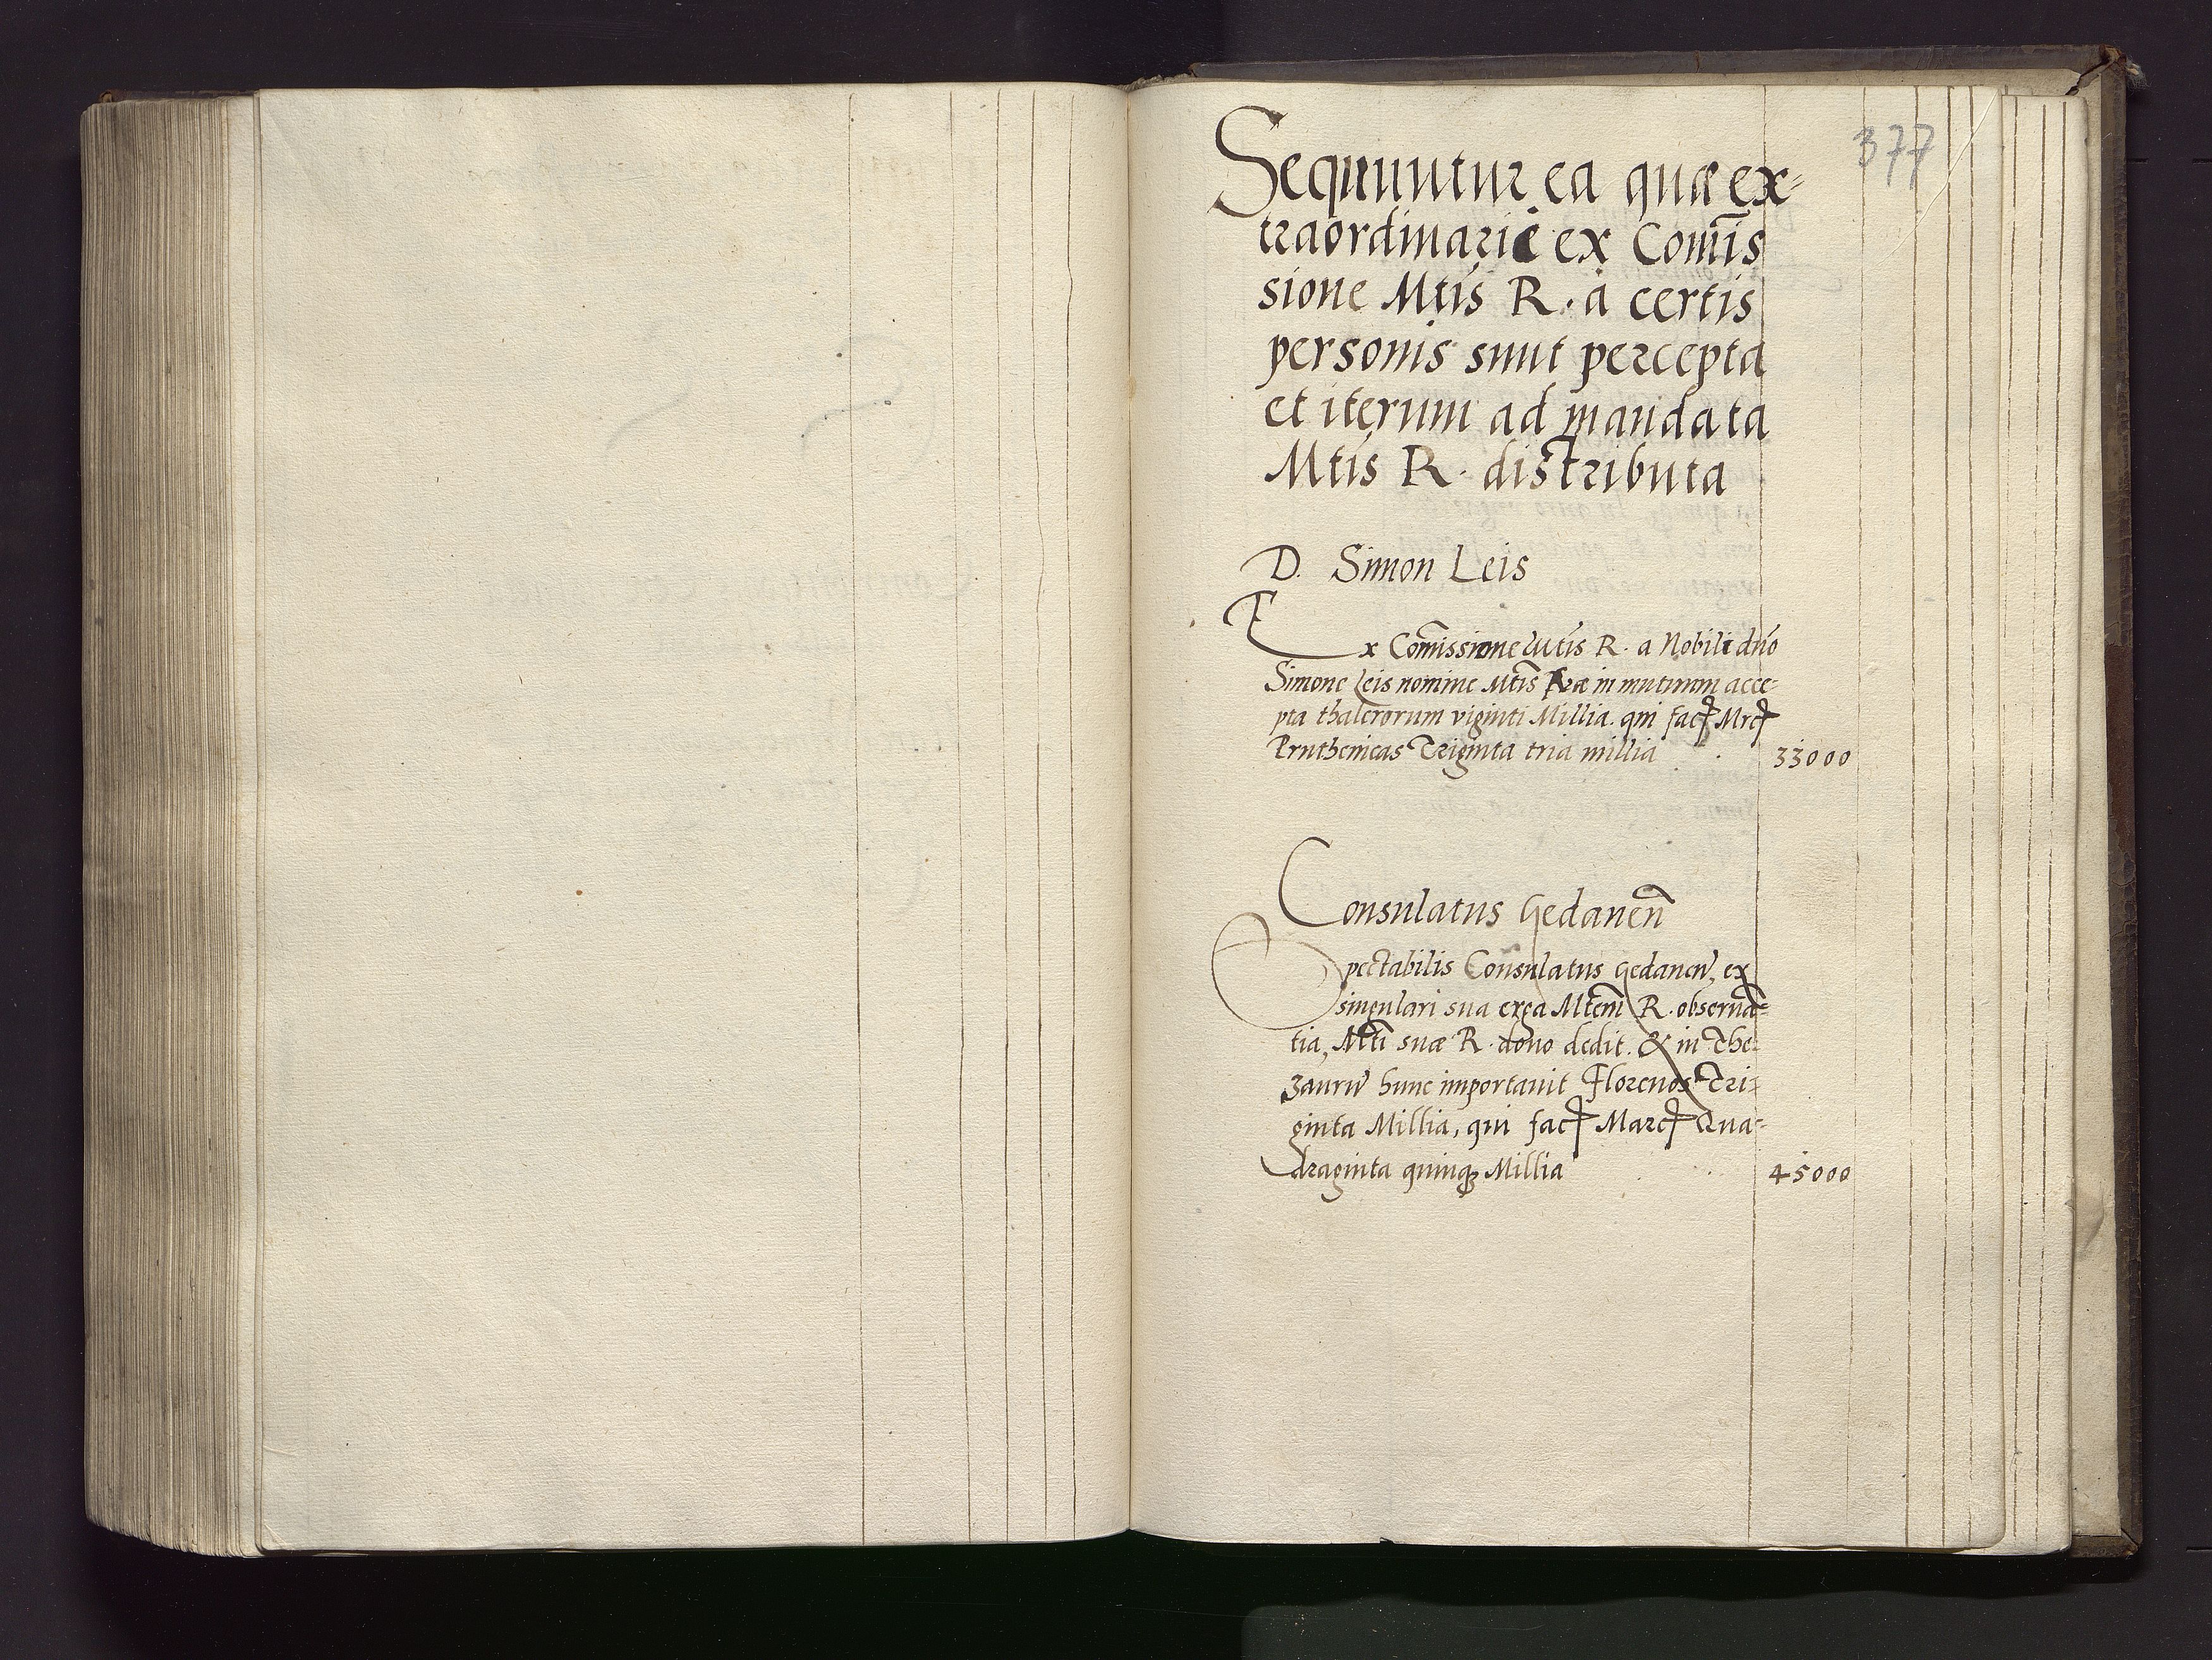 377
Sequuntur ea quæ ex=
traordinarie ex Comis̄
sione Mtis R. a certis
personis sunt percepta
et iterum ad mandata
Mtis R. distributa
D. Simon Leis
Ex Com̄issione Mtis R. a Nobili dn̄o
Simone Leis nomine Mtis Ræ in mutuum acce=
pta thalerorum viginti Millia. qui facꝭ Mrcꝭ
Pruthenicas Triginta tria millia 33000
Consulatus Gedanen̄
Spectabilis Consulatus Gedanen̄, ex
singulari sua erga Mtem R. observā=
tia, Mti suæ R. dono dedit. & in The=
zaurū hunc importavit Florenos Tri=
ginta Millia, qui facꝭ Marcꝭ Qua=
draginta quinqꝫ Millia 45000